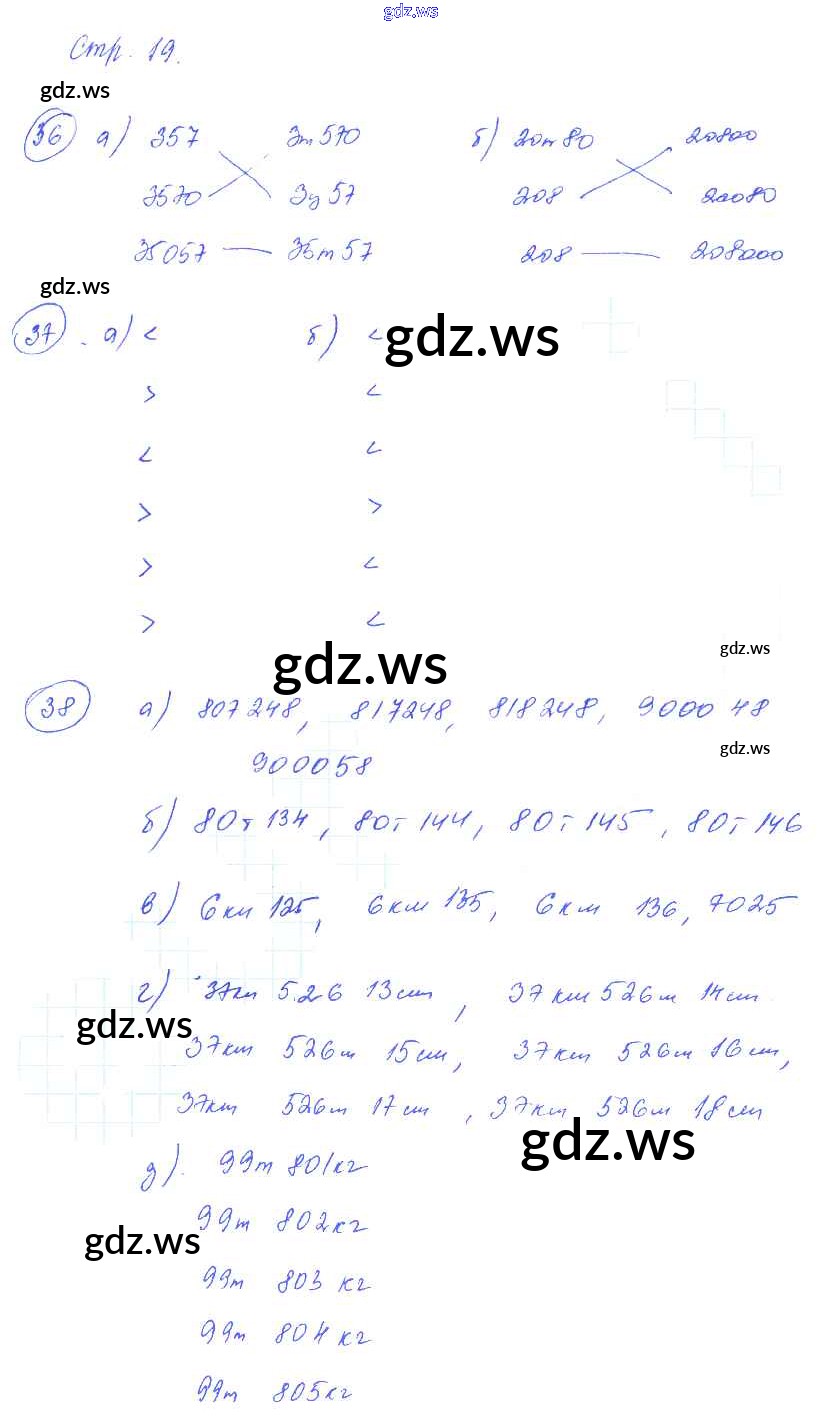 gdz.ws
Стр. 19.
gdz.ws
36 а) 357 3т 570 б) 20т 80 20800
3570 3ц 57 208 20080
35057 35т 57 208 208000
gdz.ws
37. а) < б) < gdz.ws
> <
< <
> >
> <
> <
gdz.ws
gdz.ws
38 а) 807248, 817248, 818248, 900048
gdz.ws
900058
б) 80т 134, 80т 144, 80т 145, 80т 146
в) 6км 125, 6км 135, 6км 136, 7025
г) 37км 526 13см, 37км 526м 14см
gdz.ws
37км 526м 15см, 37км 526м 16см,
37км 526м 17см, 37км 526м 18см
gdz.ws
д). 99т 801кг
99т 802кг
gdz.ws
99т 803 кг
99т 804 кг
99т 805кг